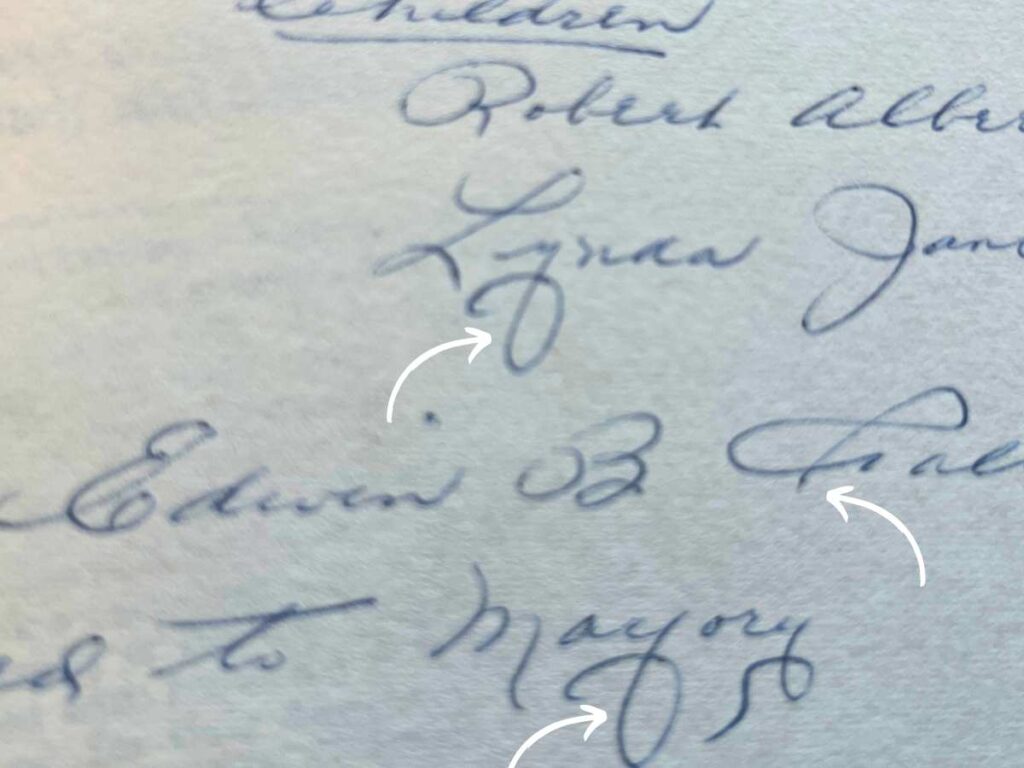 Children
Robert Alber
Lynda Jan
Edwin B
to Mayory